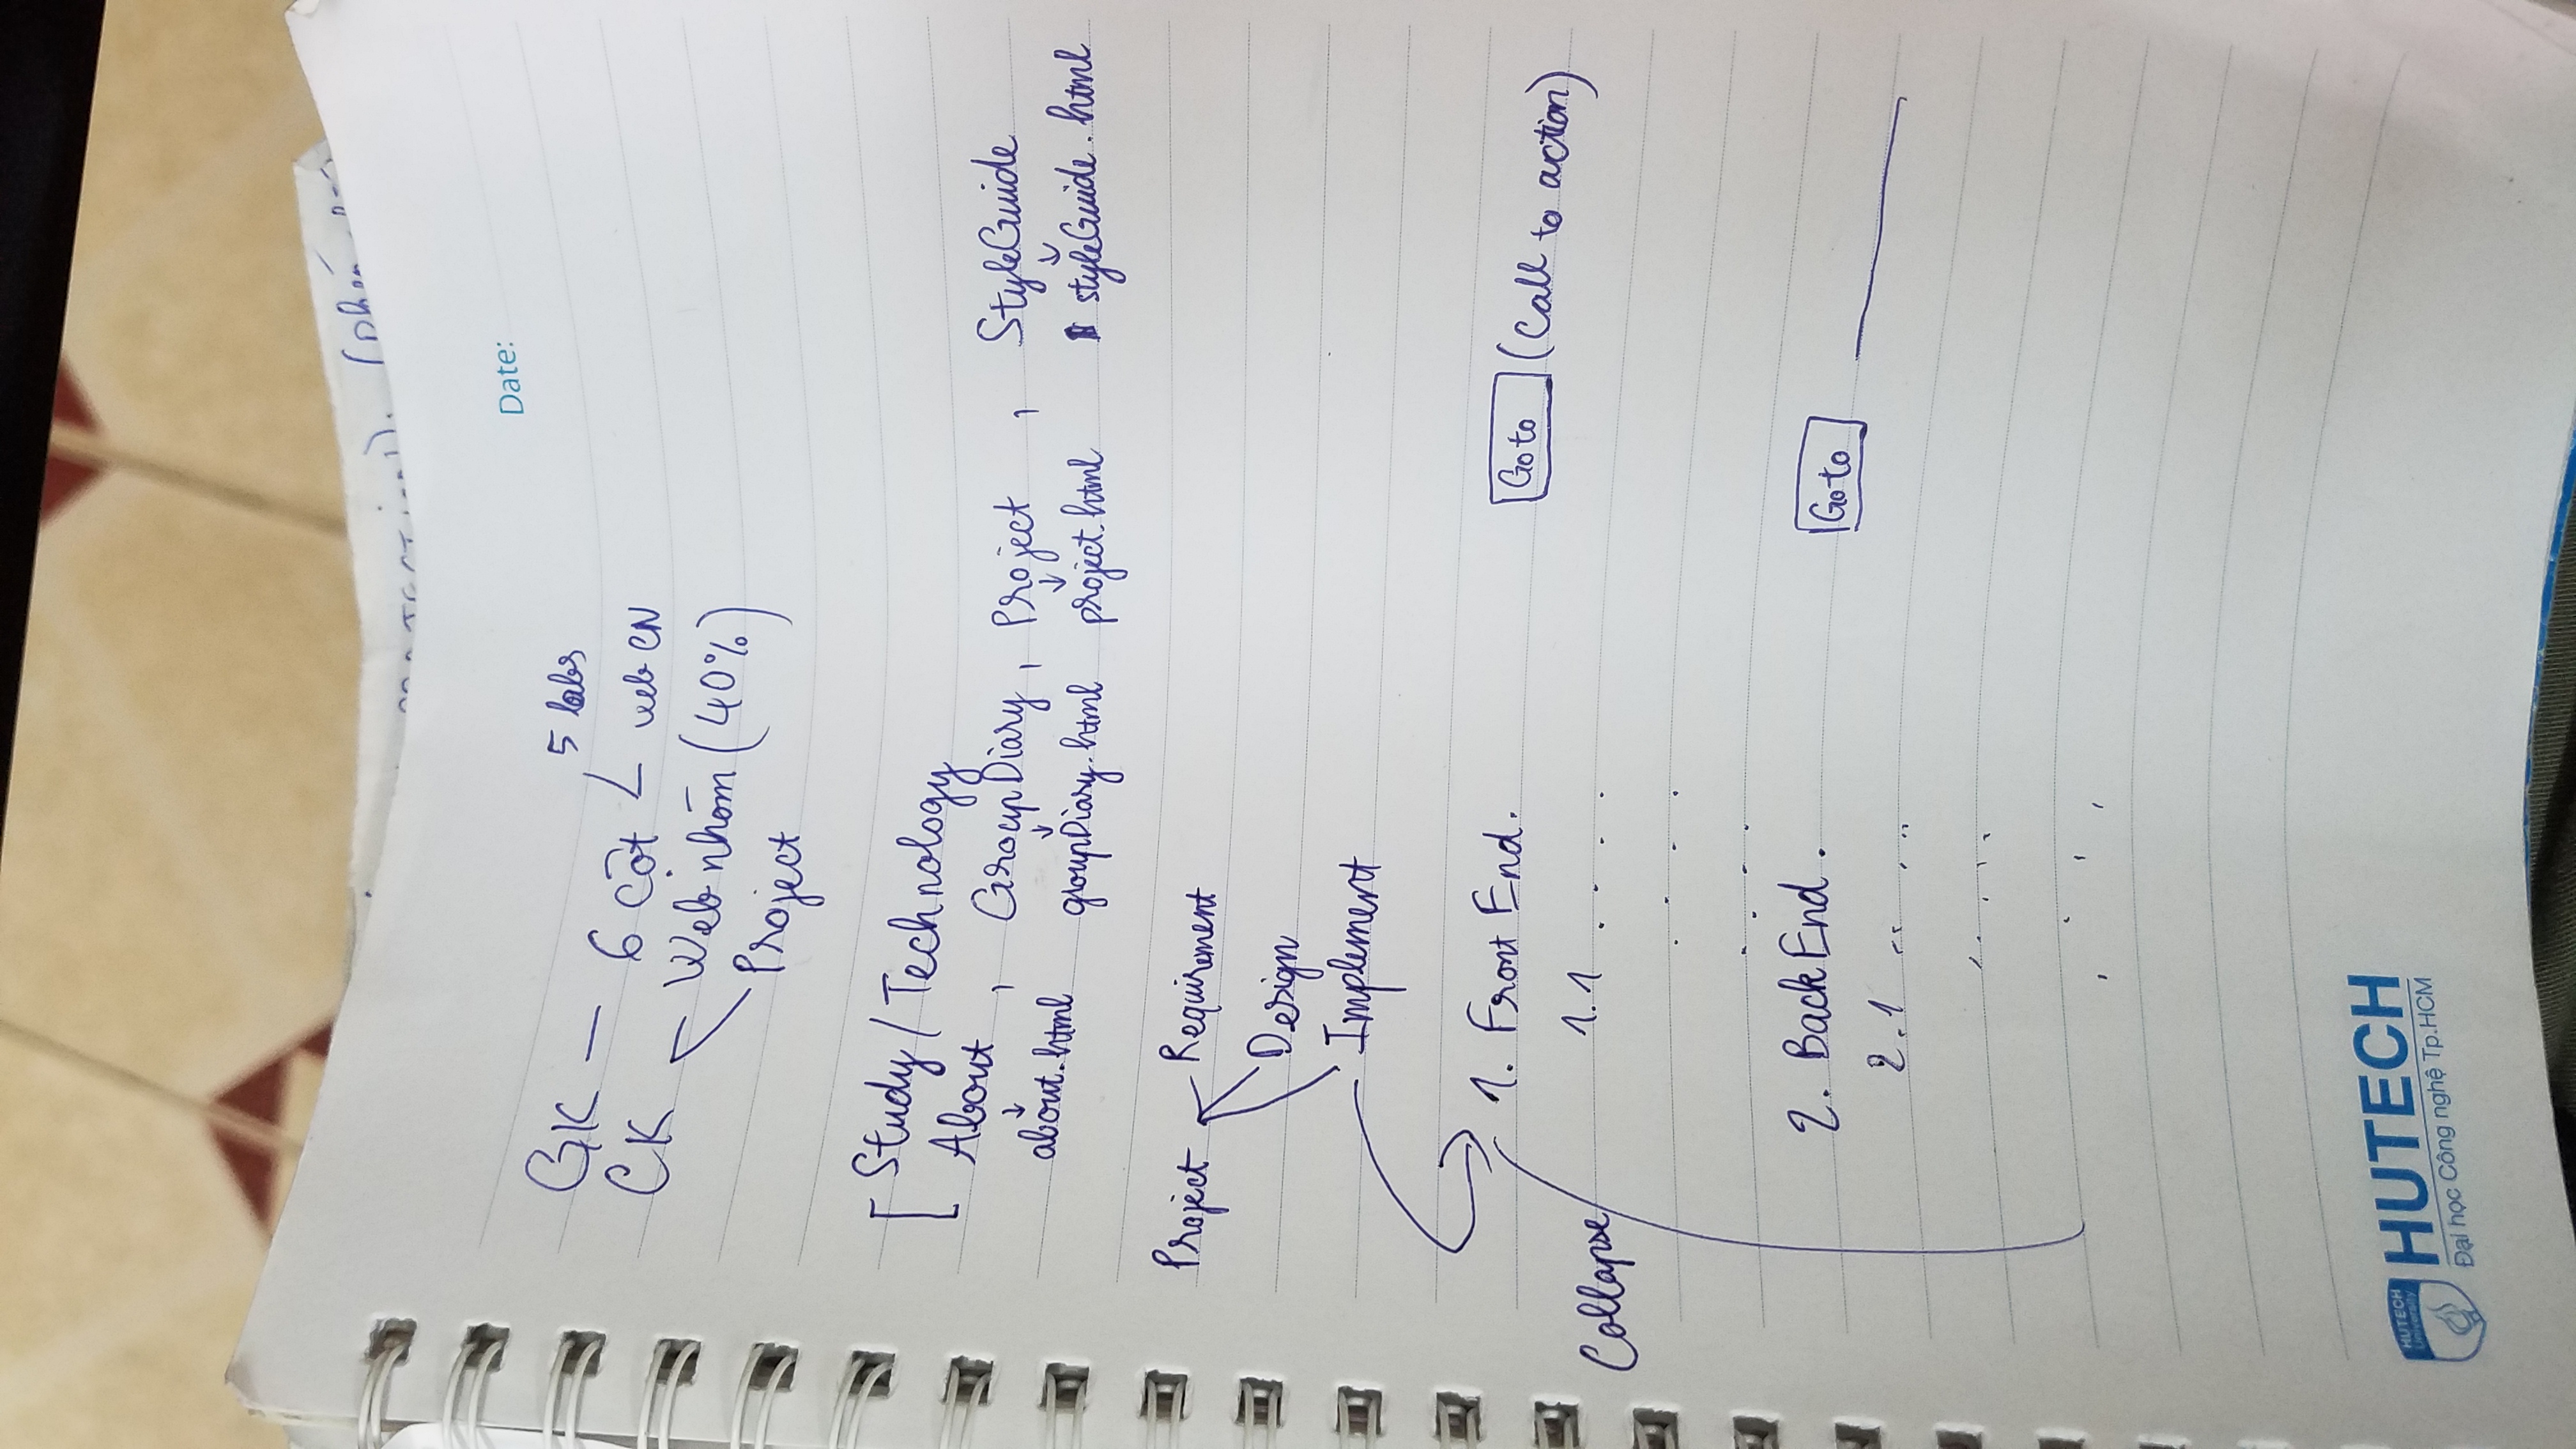 Date:
5 labs
GK — 6 cột
web CN
CK
Web nhóm (40%)
Project
Study / Technology
About , GroupDiary , Project , StyleGuide
about.html groupDiary.html project.html styleGuide.html
Project Requirement
Design
Implement
1. Front End. Goto (Call to action)
Collapse 1.1 . . . .
. . . .
. . . .
2. Back End. Goto
2.1
HUTECH University
HUTECH
Đại học Công nghệ Tp.HCM